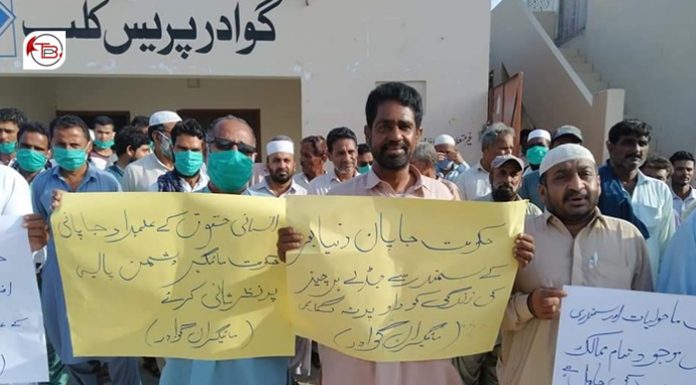 گوادر پریس کلب
TBP
انسانی حقوق کے علمبردار جاپانی
حکومت ماہیگیر دشمن پالیسی
پر نظر ثانی کرے
(ماہیگیران گوادر)
حکومت جاپان دنیا
کے سمندر سے جڑے ہر چیز
کی زندگی کو داؤ پر نہ لگائیں
(ماہیگیران گوادر)
ماحولیات اور سمندری
موجود تمام ممالک